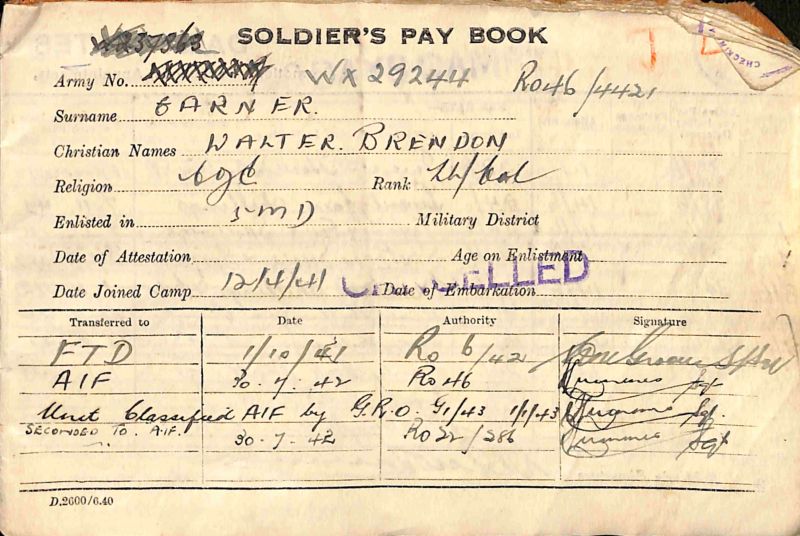 SOLDIER'S PAY BOOK
Army No. WX 29244 Ro46/4421
Surname GARNER.
Christian Names WALTER. BRENDON
Religion C of E Rank Lt/Col
Enlisted in 5 M D Military District
Date of Attestation Age on Enlistment
Date Joined Camp 12/4/41 Date of Embarkation
CANCELLED
Transferred to Date Authority Signature
FTD 1/10/41 Ro 6/42
AIF 30.7.42 Ro 46 Sgt
Unit Classified AIF by G.R.O. G1/43 1/1/43 Sgt.
SECONDED TO. A.I.F. 30.7.42 Ro 22/286 Sgt
D.2600/6.40